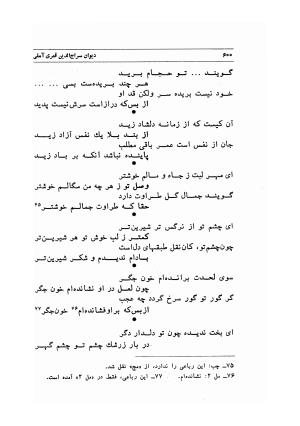 ۶۰۰ دیوان سراج‌الدین قمری آملی
گویند ... تو حجام برید
هر چند بریده‌ست بسی ... ...
خود نیست بریده سر ولکن قد او
از بس‌که درازاست سرش‌نیست پدید
آن کیست که از زمانه دلشاد زید
از بند بلا یك نفس آزاد زید
جان از نفس است عمر باقی مطلب
پاینده نباشد آنکه بر باد زید
ای مهر لبت ز جاه و مالم خوشتر
وصل تو ز هر چه من سگالم خوشتر
گویند جمال گل طراوت دارد
حقا که طراوت جمالم خوشتر۷۵
ای چشم تو از نرگس تر شیرین‌تر
کمتر ز لب خوش تو هر شیرین‌تر
چون‌چشم‌تو، کان‌نقل طبقهای دل‌است
بادام ندیدم و شکر شیرین‌تر
سوی لحدت برانده‌ام خون جگر
چون لعل در او نشانده‌ام خون جگر
گر گور تو گور سرخ گردد چه عجب
از بس‌که براو فشانده‌ام۷۶ خون‌جگر۷۷
ای بخت ندیده چون تو دلدار دگر
در بار زرشك چشم تو چشم گهر
۷۵- چپ: این رباعی را ندارد. از «مج» نقل شد.
۷۶- مل ۲: نشانده‌ام. ۷۷- این رباعی، فقط در «مل ۲» آمده است.